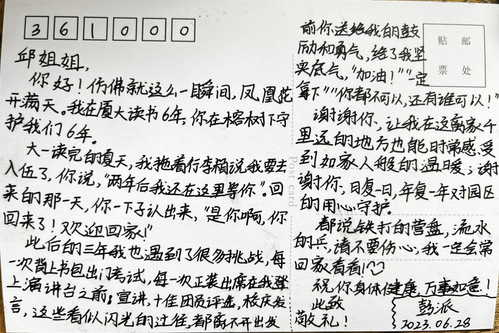 361000
邱姐姐，
你好！仿佛就这么一瞬间，凤凰花
开满天。我在厦大读书6年，你在榕树下守
护我们6年。
大一读完的夏天，我拖着行李箱说我要去
入伍了，你说，“两年后我还在这里等你”。回
来的那一天，你一下子认出来，“是你啊，你
回来了！欢迎回家！”
此后的三年我也遇到了很多挑战，每
一次背上书包出门考试，每一次正装出席在我登
上演讲台之前：宣讲，十佳团员评选，校庆发
言，这些看似闪光的过往，都离不开出发
前你送给我的鼓
励和勇气，给了我坚
实底气，“加油！”“一定
拿下”“你都不可以，还有谁可以！”
谢谢你，让我在这离家千
里远的地方也能时常感受
到如家人般的温暖；谢
谢你，日复一日，年复一年对园区
的用心守护。
都说铁打的营盘，流水
的兵，请不要伤心，我一定会常
回家看看♡
祝你身体健康，万事如意！
此致
敬礼！
彭派
2023.06.28
贴 邮
票 处
Post card